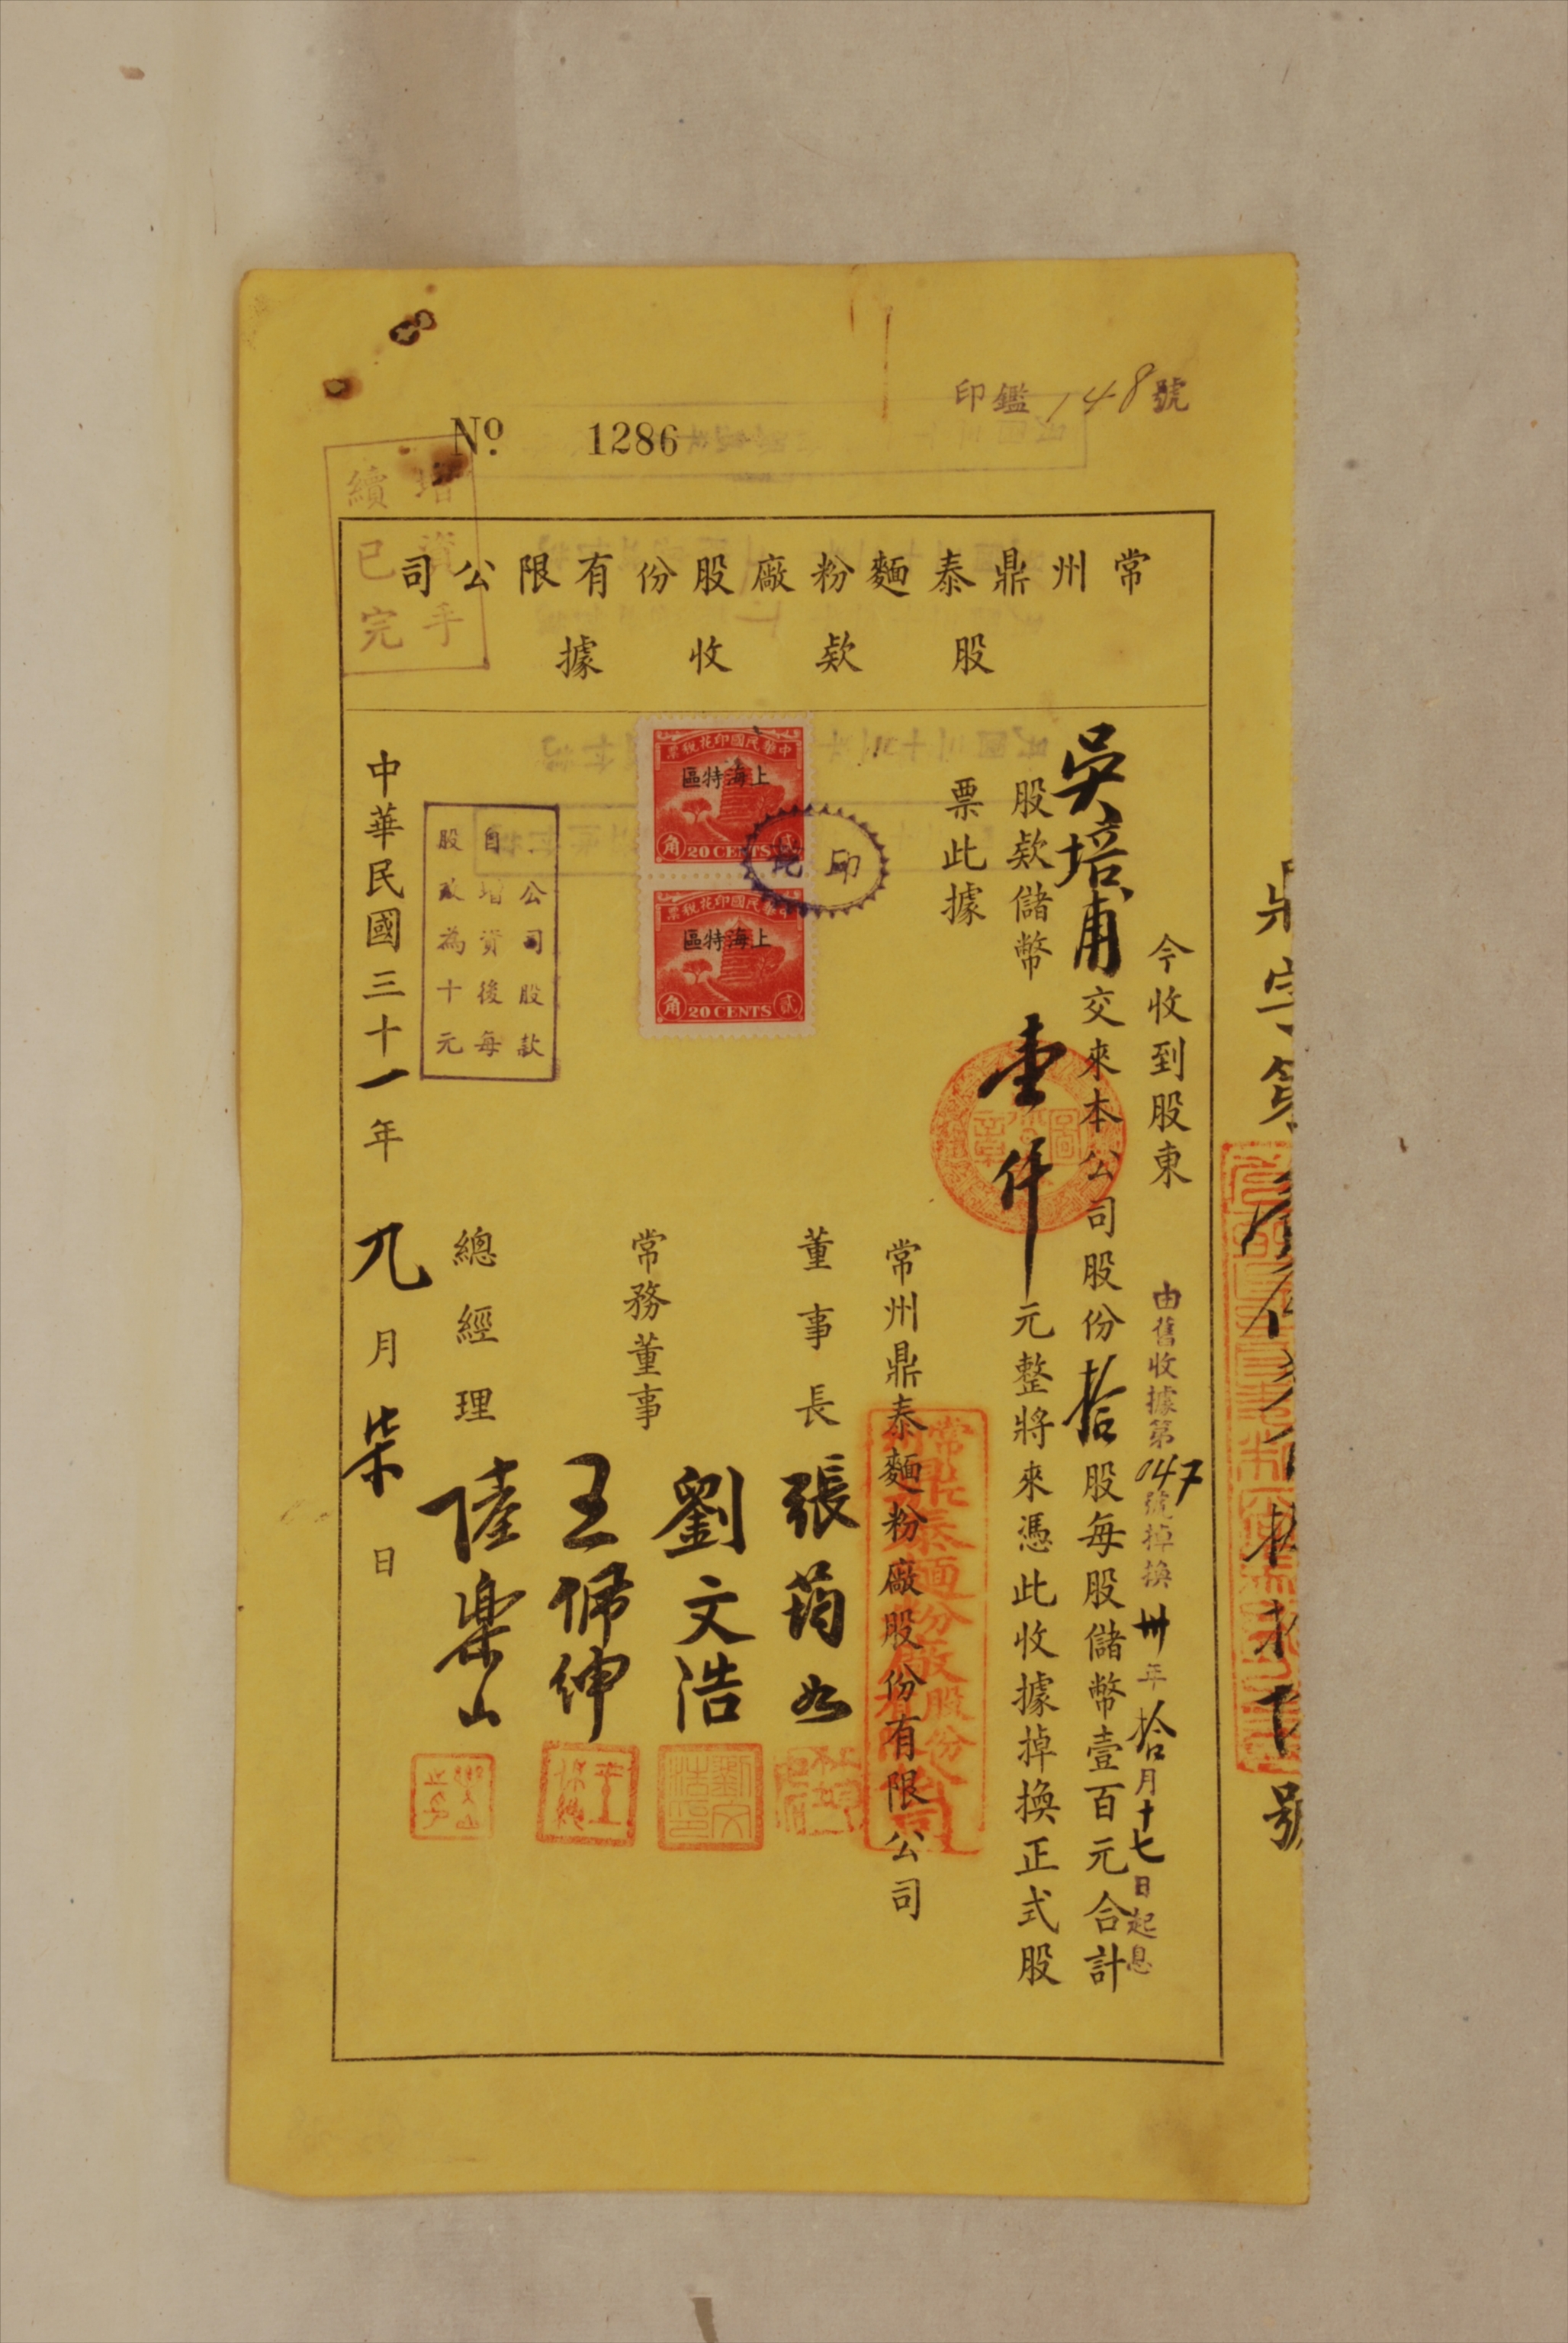 印鑑148號
No. 1286
常州鼎泰麵粉廠股份有限公司
股欵收據
增資
續手
已完
今收到股東
由舊收據第047號掉換卅年拾月十七日起息
吳培甫交來本公司股份拾股每股儲幣壹百元合計
股欵儲幣壹仟元整將來憑此收據掉換正式股
票此據
常州鼎泰麵粉廠股份有限公司
董事長 張
常務董事 劉文浩
王
總經理 陸樂山
中華民國三十一年九月柒日
公司股款
自增資後每
股改為十元
中華民國印花稅票
上海特區
貳角
20 CENTS
中華民國印花稅票
上海特區
貳角
20 CENTS
號